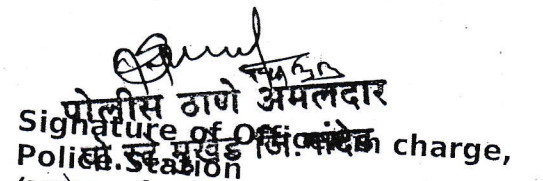 पोलीस ठाणे अमलदार
Signature of Officer in charge,
पो. स्टे मुखेड जि. नांदेड
Police Station